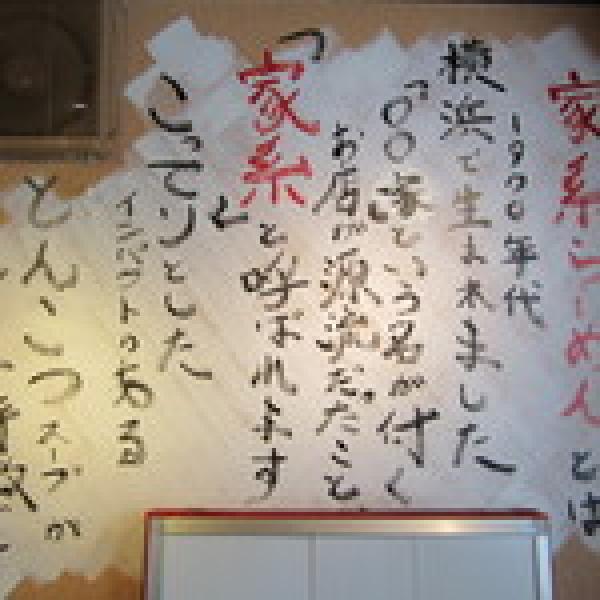 家系らーめんとは
1900年代
横浜で生まれました
「○○家という名が付く
お店が源流だったこと
「家系」と呼ばれます
こってりとした
インパクトのある
とんこつスープが